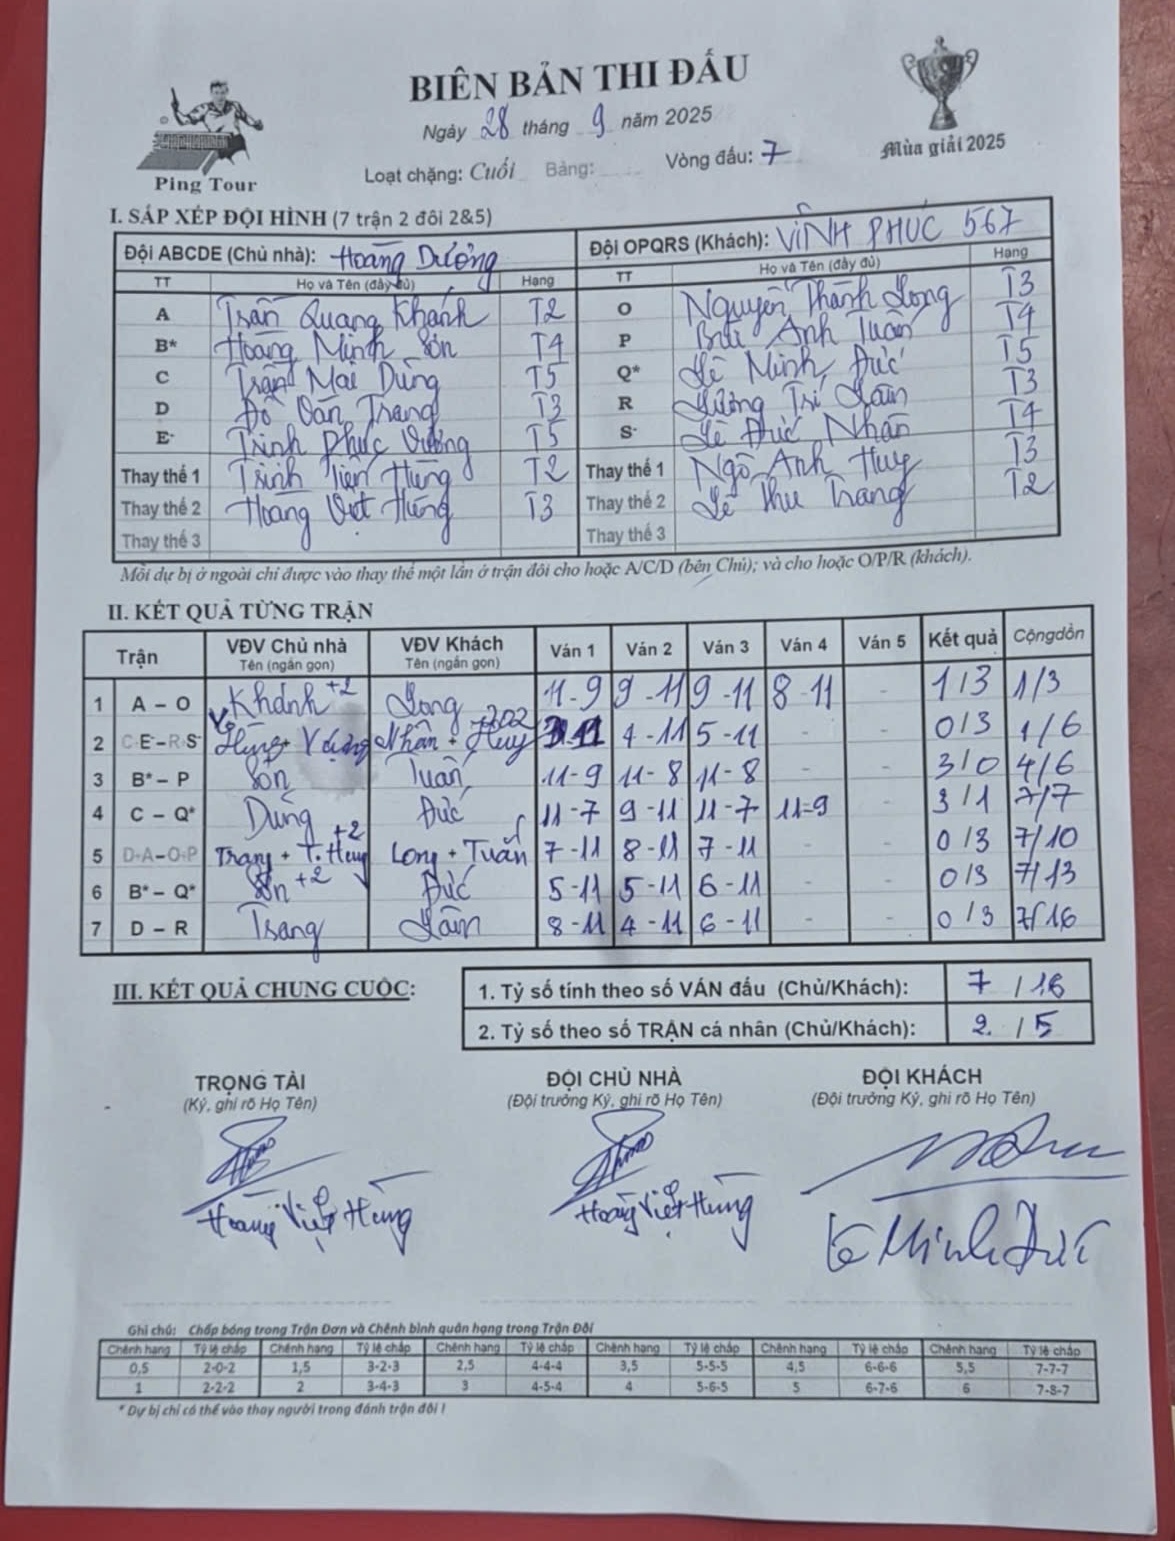 BIÊN BẢN THI ĐẤU
Ngày 28 tháng 9 năm 2025
Loạt chặng: Cuối Bảng: Vòng đấu: 7
Ping Tour
Mùa giải 2025
I. SẮP XẾP ĐỘI HÌNH (7 trận 2 đôi 2&5)
Đội ABCDE (Chủ nhà): Hoàng Dương Đội OPQRS (Khách): VĨNH PHÚC 567
TT Họ và Tên (đầy đủ) Hạng TT Họ và Tên (đầy đủ) Hạng
A Trần Quang Khánh T2 O Nguyễn Thành Long T3
B* Hoàng Minh Sơn T4 P Bùi Anh Tuấn T4
C Trần Mai Dũng T5 Q* Lê Minh Đức T5
D Đỗ Văn Trang T3 R Lương Trí Lâm T3
E- Trịnh Phúc Vượng T5 S- Lê Đức Nhân T4
Thay thế 1 Trịnh Tiến Hưng T2 Thay thế 1 Ngô Anh Huy T3
Thay thế 2 Hoàng Việt Hùng T3 Thay thế 2 Lê Thu Trang T2
Thay thế 3 Thay thế 3
Mỗi dự bị ở ngoài chỉ được vào thay thế một lần ở trận đôi cho hoặc A/C/D (bên Chủ); và cho hoặc O/P/R (khách).
II. KẾT QUẢ TỪNG TRẬN
Trận VĐV Chủ nhà Tên (ngắn gọn) VĐV Khách Tên (ngắn gọn) Ván 1 Ván 2 Ván 3 Ván 4 Ván 5 Kết quả Cộng dồn
1 A – O Khánh +2 Long 11-9 9-11 9-11 8-11 - 1/3 1/3
2 C-E–R-S V. Hùng + Vượng Nhân + Huy +202 4-11 5-11 - - 0/3 1/6
3 B* – P Sơn Tuấn 11-9 11-8 11-8 - - 3/0 4/6
4 C – Q* Dũng Đức 11-7 9-11 11-7 11-9 - 3/1 7/7
5 D-A–O-P Trang + T. Hưng +2 Long + Tuấn 7-11 8-11 7-11 - - 0/3 7/10
6 B* – Q* Sơn +2 Đức 5-11 5-11 6-11 - - 0/3 7/13
7 D – R Trang Lâm 8-11 4-11 6-11 - - 0/3 7/16
III. KẾT QUẢ CHUNG CUỘC:
1. Tỷ số tính theo số VÁN đấu (Chủ/Khách): 7 / 16
2. Tỷ số theo số TRẬN cá nhân (Chủ/Khách): 2 / 5
TRỌNG TÀI ĐỘI CHỦ NHÀ ĐỘI KHÁCH
(Ký, ghi rõ Họ Tên) (Đội trưởng Ký, ghi rõ Họ Tên) (Đội trưởng Ký, ghi rõ Họ Tên)
Hoàng Việt Hùng Hoàng Việt Hùng Lê Minh Đức
Ghi chú: Chấp bóng trong Trận Đơn và Chênh bình quân hạng trong Trận Đôi
Chênh hạng Tỷ lệ chấp Chênh hạng Tỷ lệ chấp Chênh hạng Tỷ lệ chấp Chênh hạng Tỷ lệ chấp Chênh hạng Tỷ lệ chấp Chênh hạng Tỷ lệ chấp
0,5 2-0-2 1,5 3-2-3 2,5 4-4-4 3,5 5-5-5 4,5 6-6-6 5,5 7-7-7
1 2-2-2 2 3-4-3 3 4-5-4 4 5-6-5 5 6-7-6 6 7-8-7
* Dự bị chỉ có thể vào thay người trong đánh trận đôi !